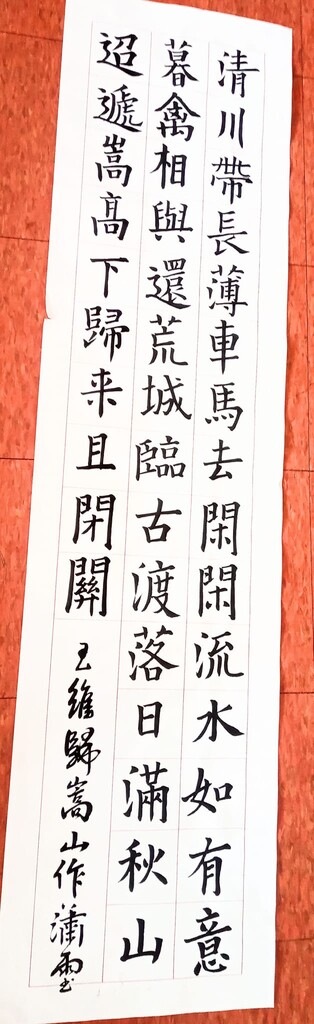 清川帶長薄車馬去閑閑流水如有意
暮禽相與還荒城臨古渡落日滿秋山
迢遞嵩高下歸来且閉關
王維歸嵩山作 蕭雪书